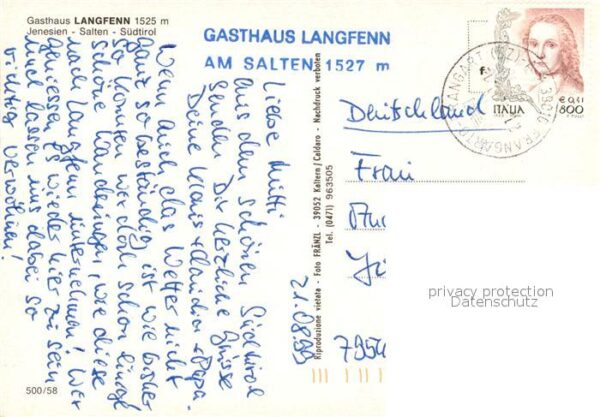 Gasthaus LANGFENN 1525 m
Jenesien - Salten - Südtirol
GASTHAUS LANGFENN
AM SALTEN 1527 m
Liebe Mutti
aus dem schönen Südtirol
senden Dir herzliche Grüsse
Deine Klaus + Claudia + Papa.
Wenn auch das Wetter nicht
ganz so beständig ist wie bisher
so konnten wir doch schon einige
schöne Wanderungen, wie diese
nach Langfenn unternehmen! Wir
geniessen es wieder hier zu sein
und lassen uns dabei so
richtig verwöhnen!
21.08.99
500/58
Riproduzione vietata - Foto FRÄNZL - 39052 Kaltern/Caldaro - Nachdruck verboten
Tel. (0471) 963505
ITALIA
€ 0,41
800
39010 FRANGARTO
Deutschland
Frau
privacy protection
Datenschutz